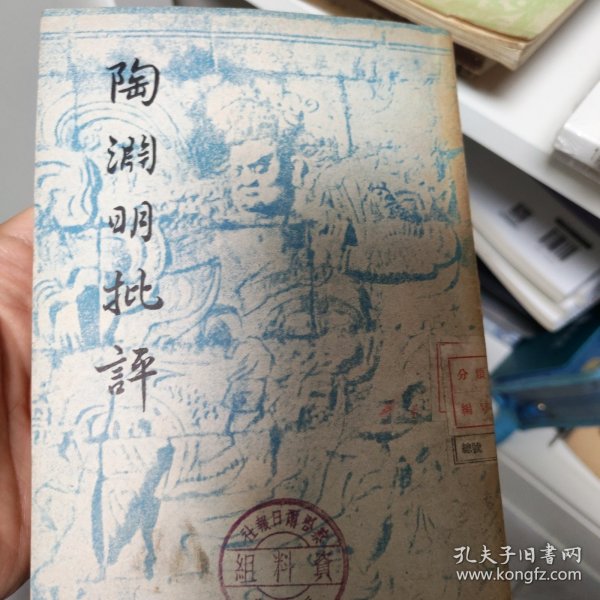 陶淵明批評
分類
編號
總號
察哈爾日報社
資料組
孔夫子旧书网
www.kongfz.com